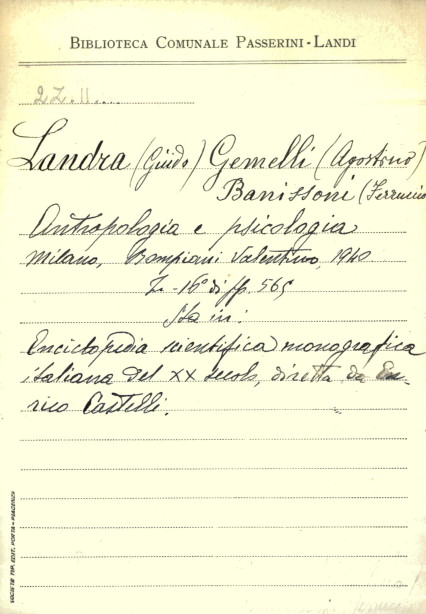 BIBLIOTECA COMUNALE PASSERINI-LANDI
2Z.II....
Landra (Guido) Gemelli (Agostino)
Banissoni (Ferruccio
Antropologia e psicologia
Milano, Bompiani Valentino, 1940
in-16° di ff. 565
Sta in:
Enciclopedia scientifica monografica
italiana del XX secolo, diretta da En-
rico Castelli.
SOCIETÀ TIP. EDIT. PORTA-PIACENZA